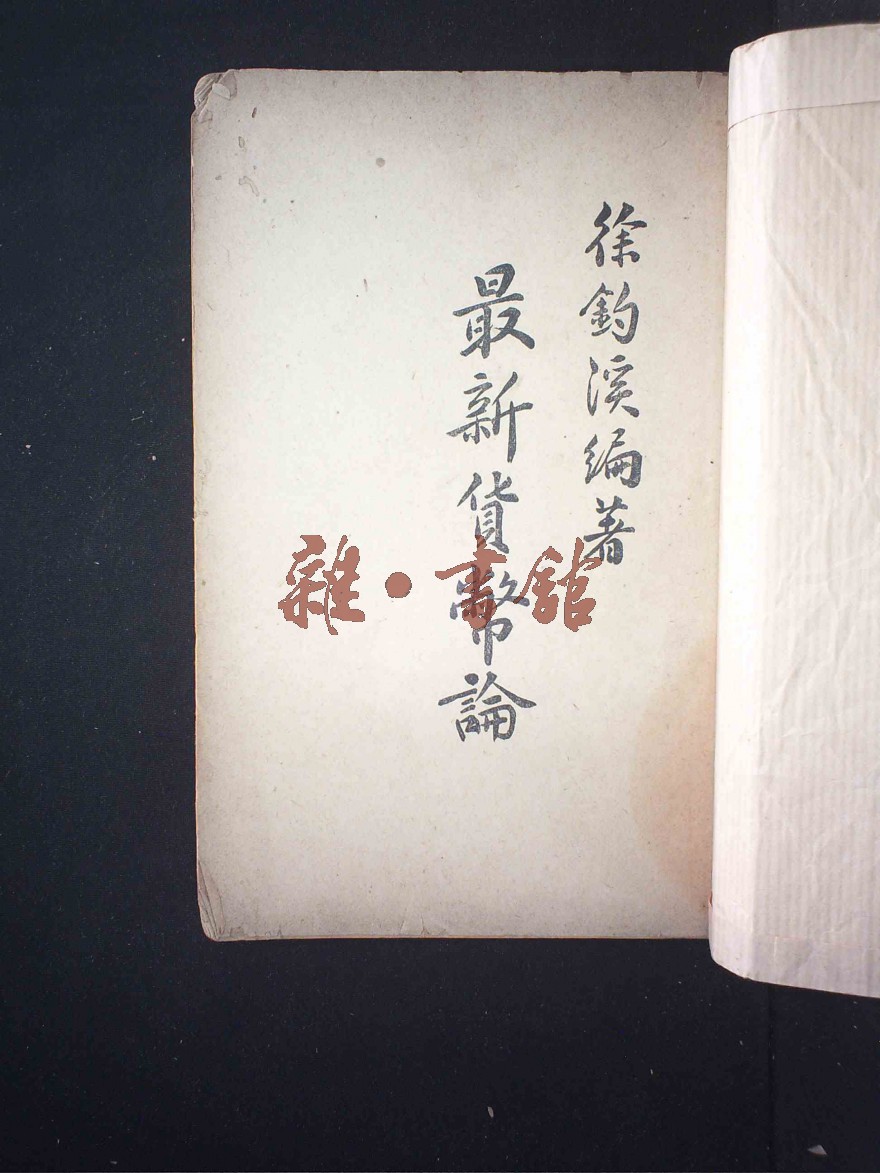 徐鈞溪編著
最新貨幣論
雜·書館